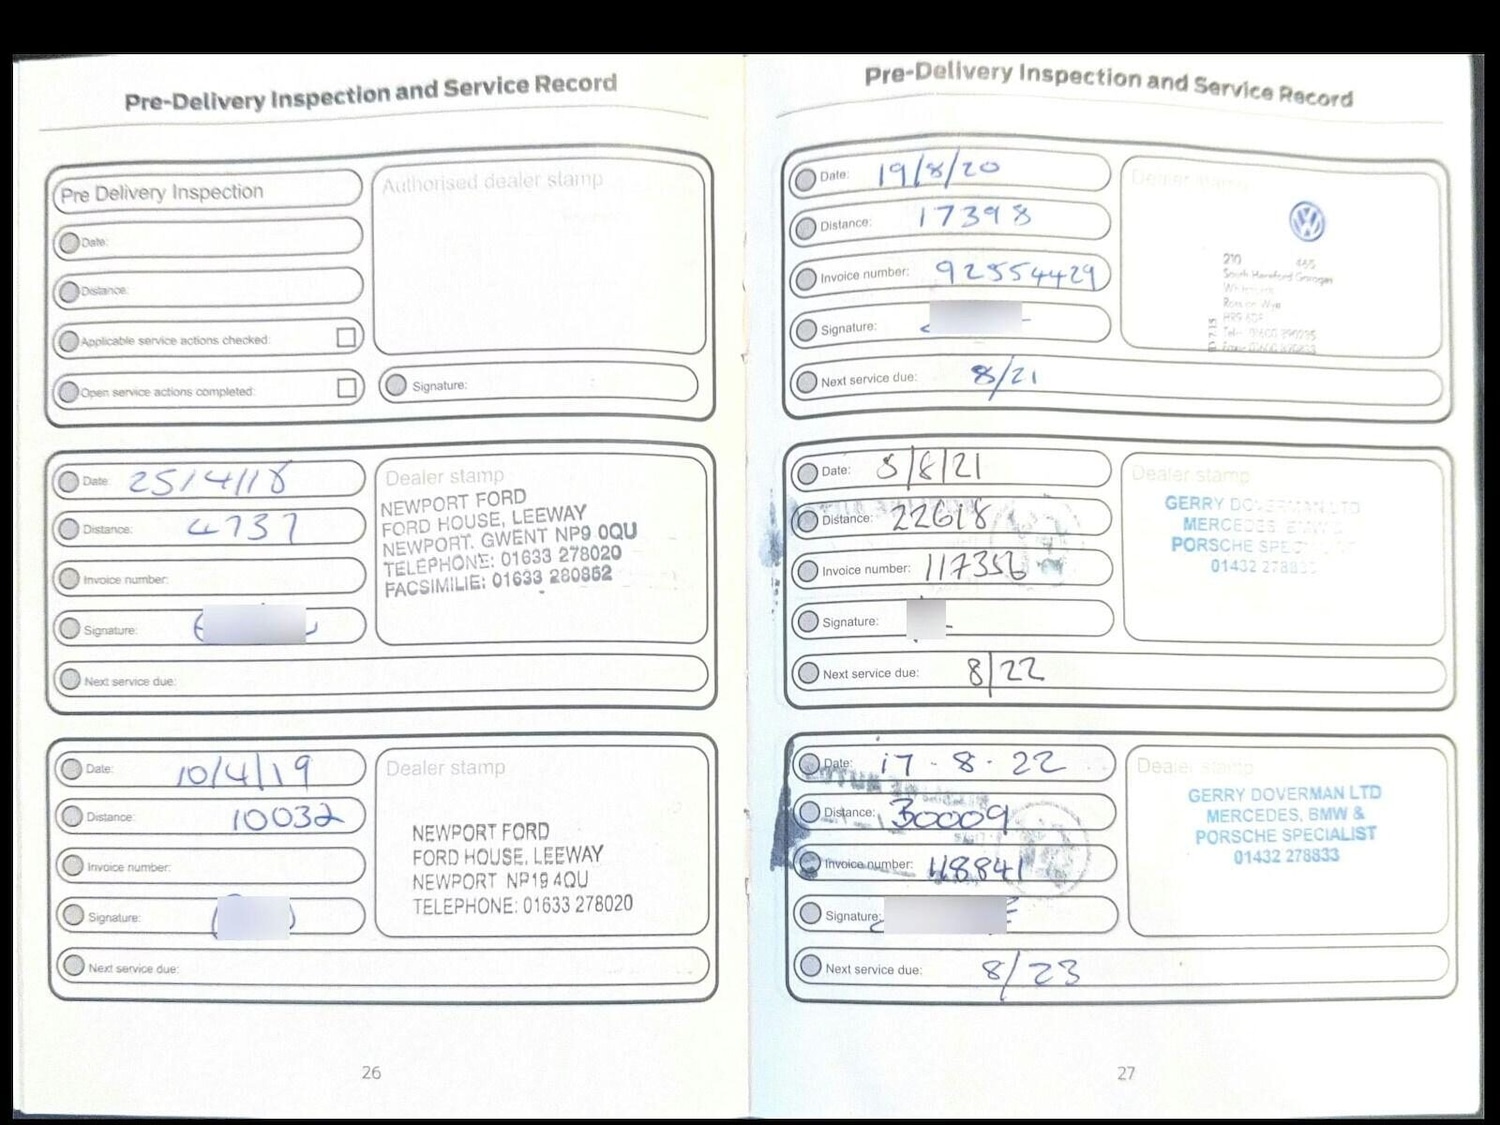 Pre-Delivery Inspection and Service Record
Pre Delivery Inspection
Authorised dealer stamp
Date:
Distance:
Applicable service actions checked:
Open service actions completed:
Signature:
Date: 25/4/18
Dealer stamp
NEWPORT FORD
FORD HOUSE, LEEWAY
NEWPORT. GWENT NP9 0QU
TELEPHONE: 01633 278020
FACSIMILIE: 01633 280862
Distance: 4737
Invoice number:
Signature:
Next service due:
Date: 10/4/19
Dealer stamp
Distance: 10032
NEWPORT FORD
FORD HOUSE, LEEWAY
NEWPORT NP19 4QU
TELEPHONE: 01633 278020
Invoice number:
Signature:
Next service due:
26
Pre-Delivery Inspection and Service Record
Date: 19/8/20
Dealer stamp
Distance: 17398
Invoice number: 92554429
210 465
South Hereford Garages
Ross on Wye
Signature:
Next service due: 8/21
Date: 8/8/21
Dealer stamp
GERRY DOVERMAN LTD
MERCEDES BMW &
PORSCHE SPEC
01432 2788
Distance: 22618
Invoice number: 117356
Signature:
Next service due: 8/22
Date: 17-8-22
Dealer stamp
GERRY DOVERMAN LTD
MERCEDES, BMW &
PORSCHE SPECIALIST
01432 278833
Distance: 30009
Invoice number: 118841
Signature:
Next service due: 8/23
27